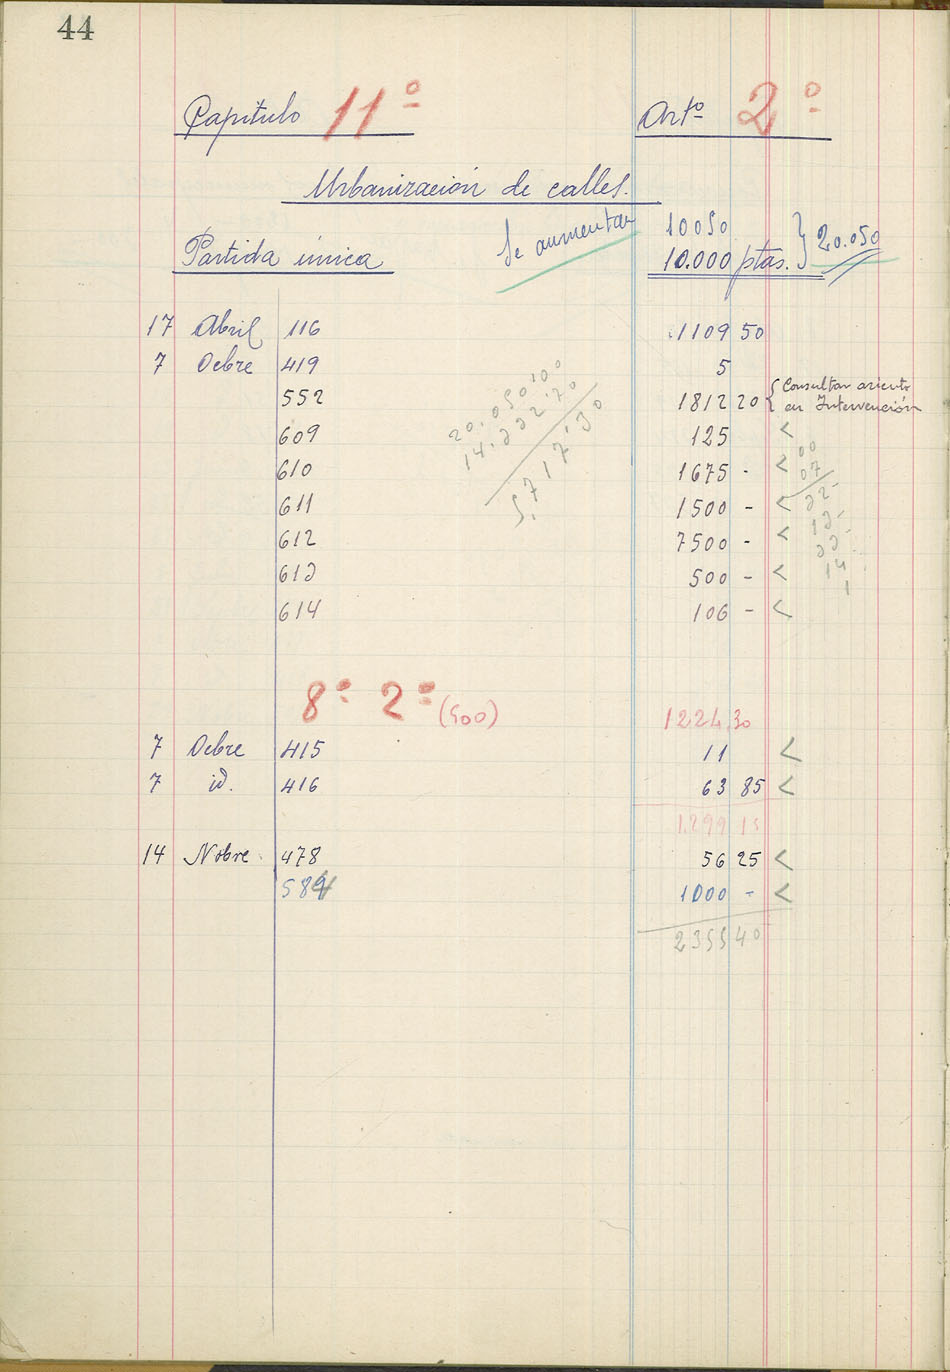 44
Capítulo 11º Artº 2º
Urbanización de calles.
Se aumentan 10050
Partida única 10.000 ptas. } 20.050
17 Abril 116 1109 50
7 Ocbre 419 5
552 1812 20 { Consultar asiento en Intervención
609 125 <
610 1675 - <
611 1500 - <
612 7500 - <
613 500 - <
614 106 - <
20.050'00
14.332'70
5.717'30
00
07
22-
12-
22-
14
1
8º 2º (500)
1224,30
7 Ocbre 415 11 <
7 id. 416 63 85 <
1.299 15
14 Nobre. 478 56 25 <
584 1000 - <
2355 40